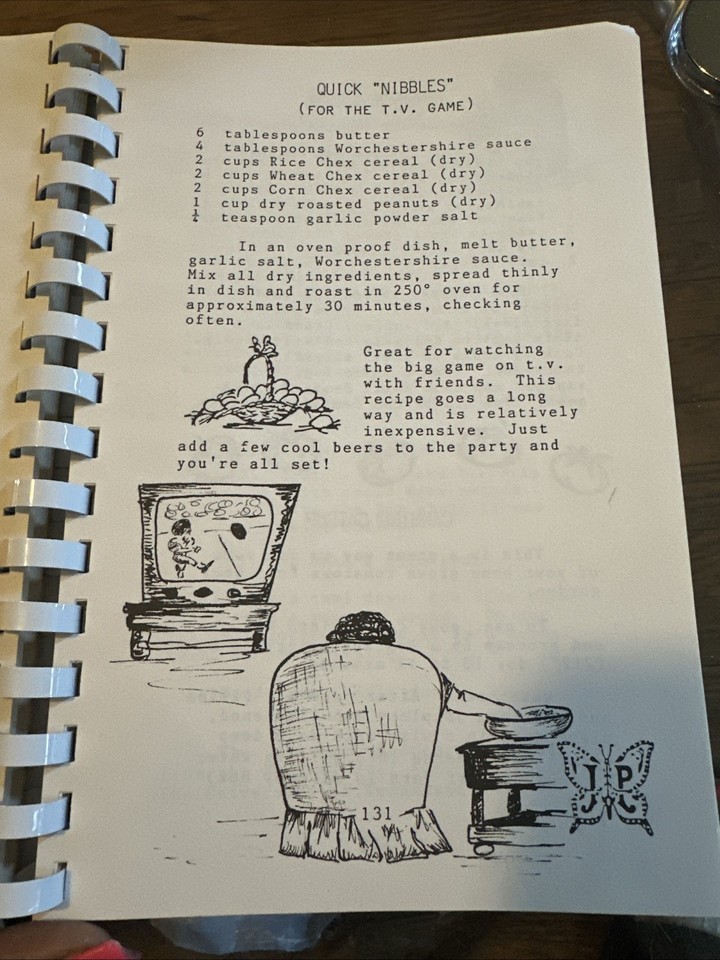 QUICK "NIBBLES"
(FOR THE T.V. GAME)
6 tablespoons butter
4 tablespoons Worchestershire sauce
2 cups Rice Chex cereal (dry)
2 cups Wheat Chex cereal (dry)
2 cups Corn Chex cereal (dry)
1 cup dry roasted peanuts (dry)
¼ teaspoon garlic powder salt
In an oven proof dish, melt butter,
garlic salt, Worchestershire sauce.
Mix all dry ingredients, spread thinly
in dish and roast in 250° oven for
approximately 30 minutes, checking
often.
Great for watching
the big game on t.v.
with friends. This
recipe goes a long
way and is relatively
inexpensive. Just
add a few cool beers to the party and
you're all set!
131
J P